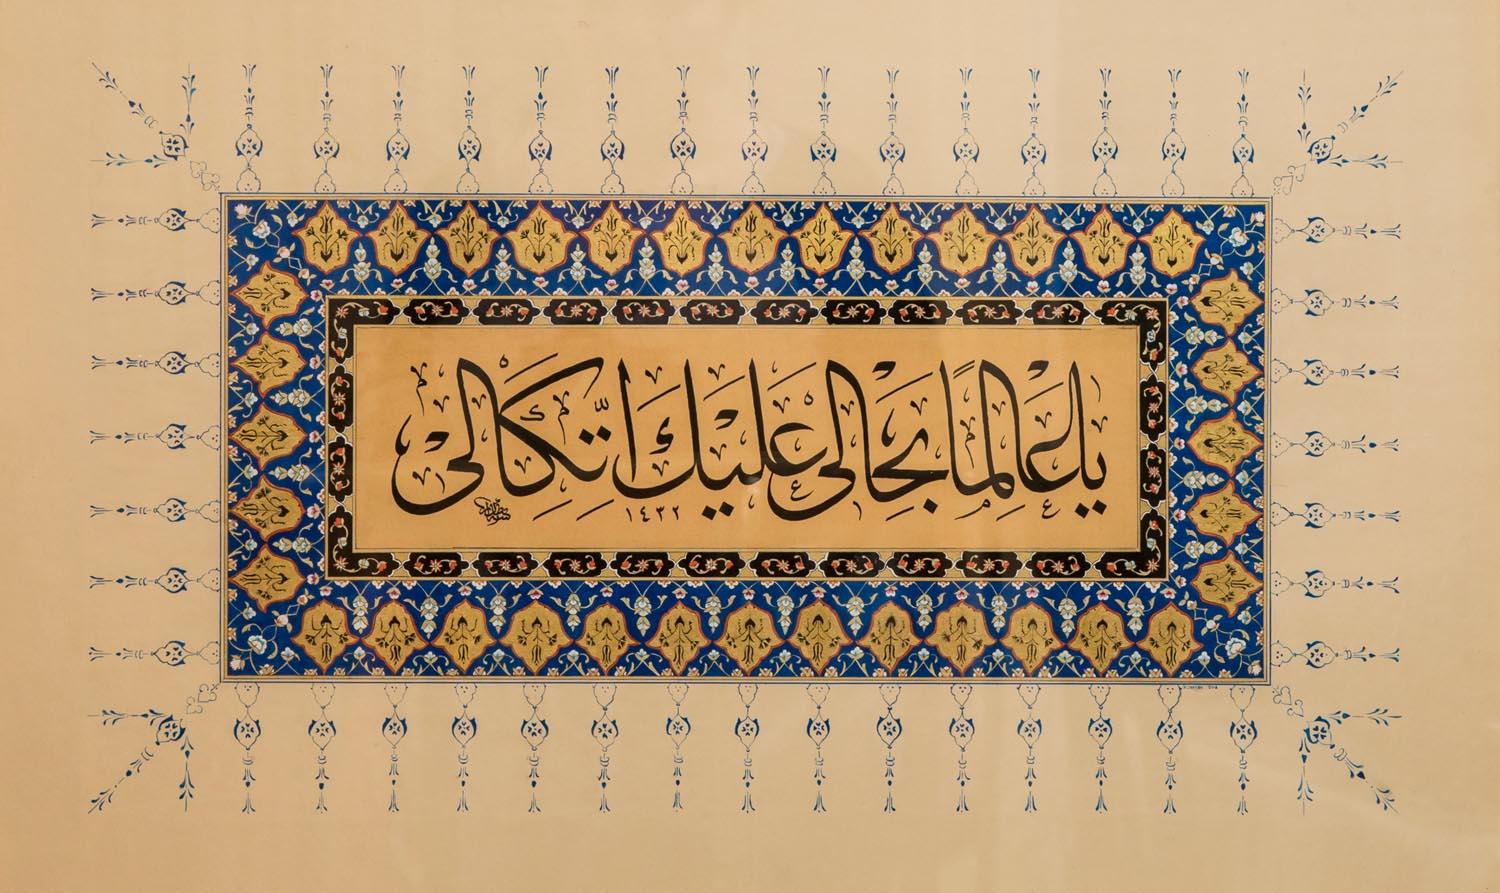 يا عالمًا بحالى عليك اتّكالى
١٤٣٢